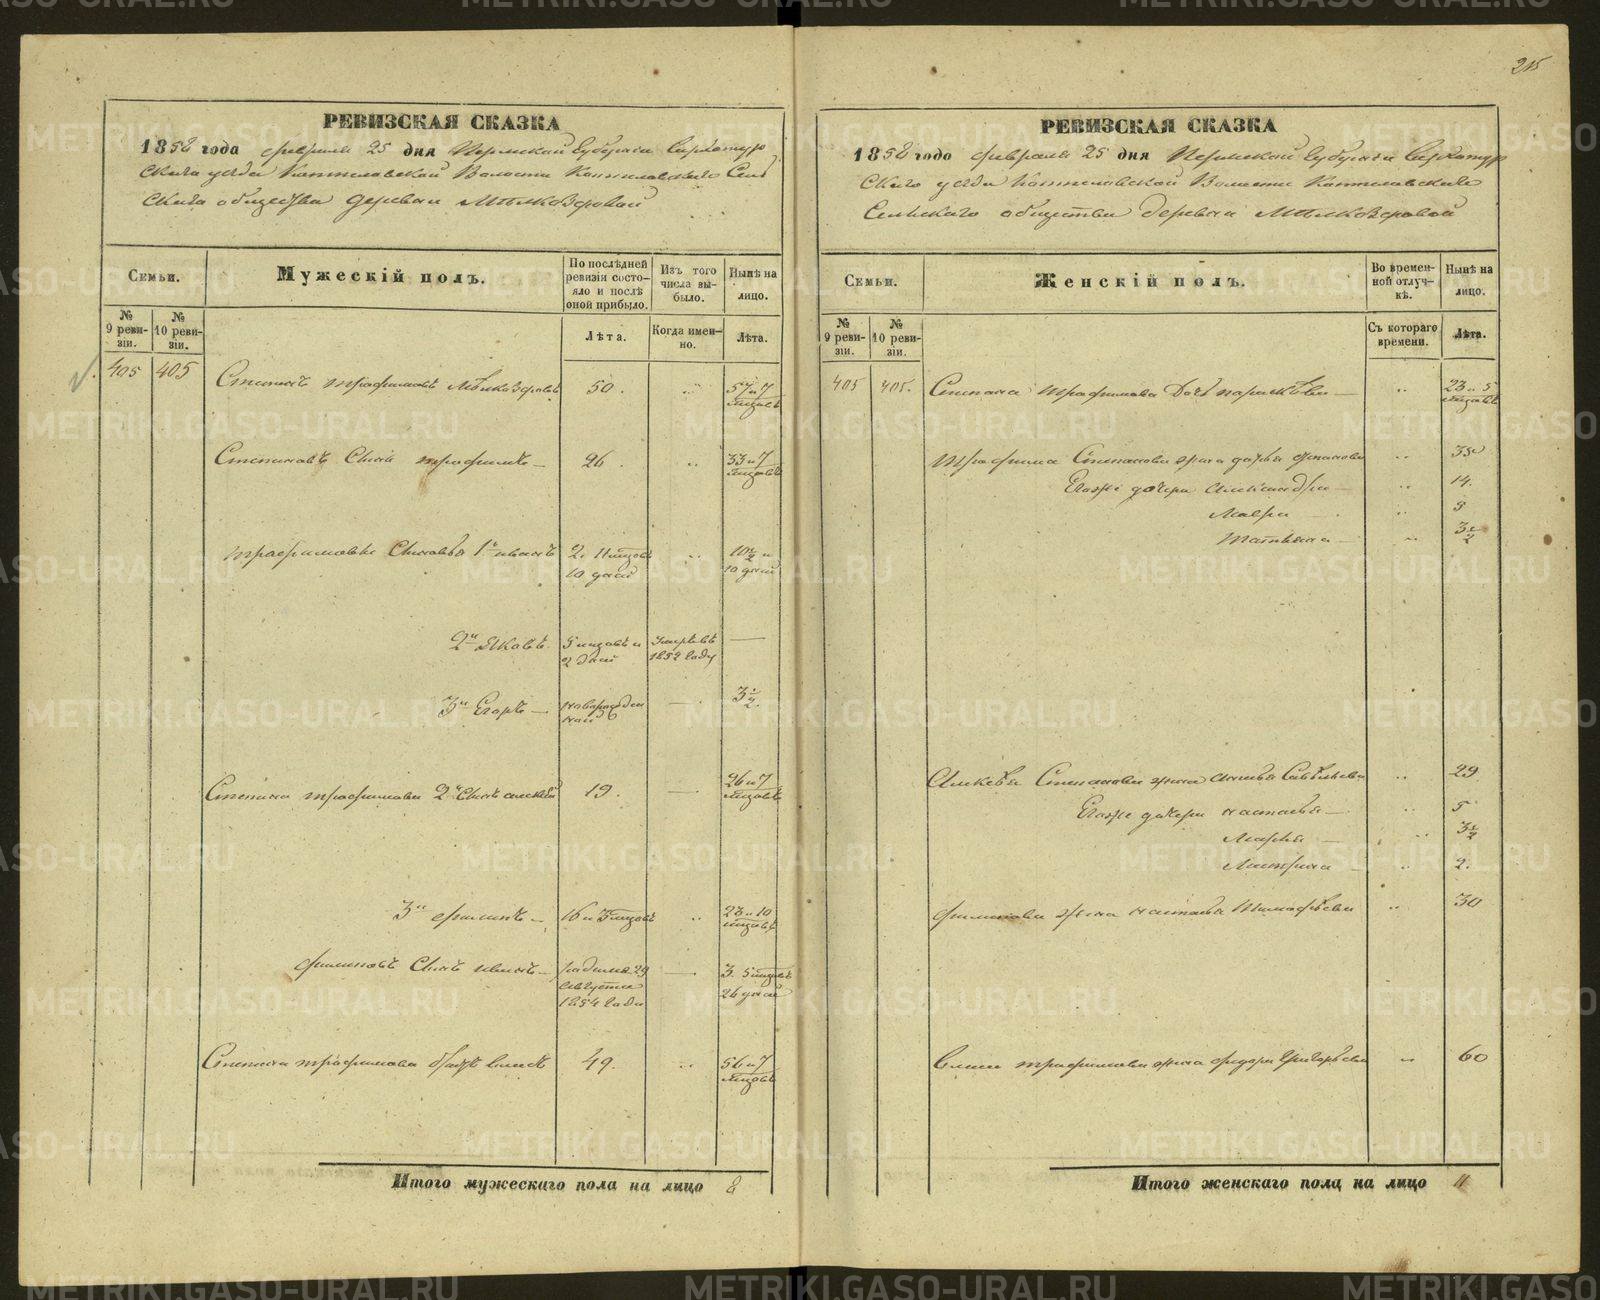 215
РЕВИЗСКАЯ СКАЗКА
1858 года февраля 25 дня Пермской Губернии Верхотур
скаго уезда Коптеловской Волости Коптеловскаго Сель
скаго общества деревни
Семьи.
Мужескій полъ.
По послѣдней ревизіи состояло и послѣ оной прибыло.
Изъ того числа выбыло.
Нынѣ на лицо.
№ 9 ревизіи.
№ 10 ревизіи.
Лѣта.
Когда именно.
Лѣта.
405 405 Степанъ Трофимовъ 50. 57 и 7 мѣсяцовъ
Степановъ Сынъ Трофимъ 26. 33 и 7 мѣсяцовъ
Трофимовы Сыновья 1й Иванъ 2. 11 мѣсяцовъ 10 дней 10½ и 10 дней
2й Яковъ 5 мѣсяцовъ и 2 дней умеръ въ 1852 году
3й Егоръ новорожденной 3½.
Степана Трофимова 2й Сынъ Алексей 19. 26 и 7 мѣсяцовъ
3й Филипъ 16 и 3 мѣсяцовъ 23 и 10 мѣсяцовъ
Филиповъ Сынъ Иванъ родился 29 Августа 1854 года 3. 5 мѣсяцовъ 26 дней
Степана Трофимова братъ 49. 56 и 7 мѣсяцовъ
Итого мужескаго пола на лицо 8
РЕВИЗСКАЯ СКАЗКА
1858 года февраля 25 дня Пермской Губернии Верхотур
скаго уезда Коптеловской Волости Коптеловскаго
Сельскаго общества деревни
Семьи.
Женскій полъ.
Во временной отлучкѣ.
Нынѣ на лицо.
№ 9 ревизіи.
№ 10 ревизіи.
Съ котораго времени.
Лѣта.
405 405. Степана Трофимова Дочь Парасковья 23 и 5 мѣсяцовъ
Трофима Степанова жена Дарья 35
Егоже дочери Александра 14.
Мавра 9
Татьяна 3½
Алексѣя Степанова жена Савельева 29
Егоже дочери Настасья 5
Марья 3½
2.
Филипова жена Настасья Тимофѣева 30
Трофимова жена Федора Григорьева 60
Итого женскаго пола на лицо 11
METRIKI.GASO-URAL.RU